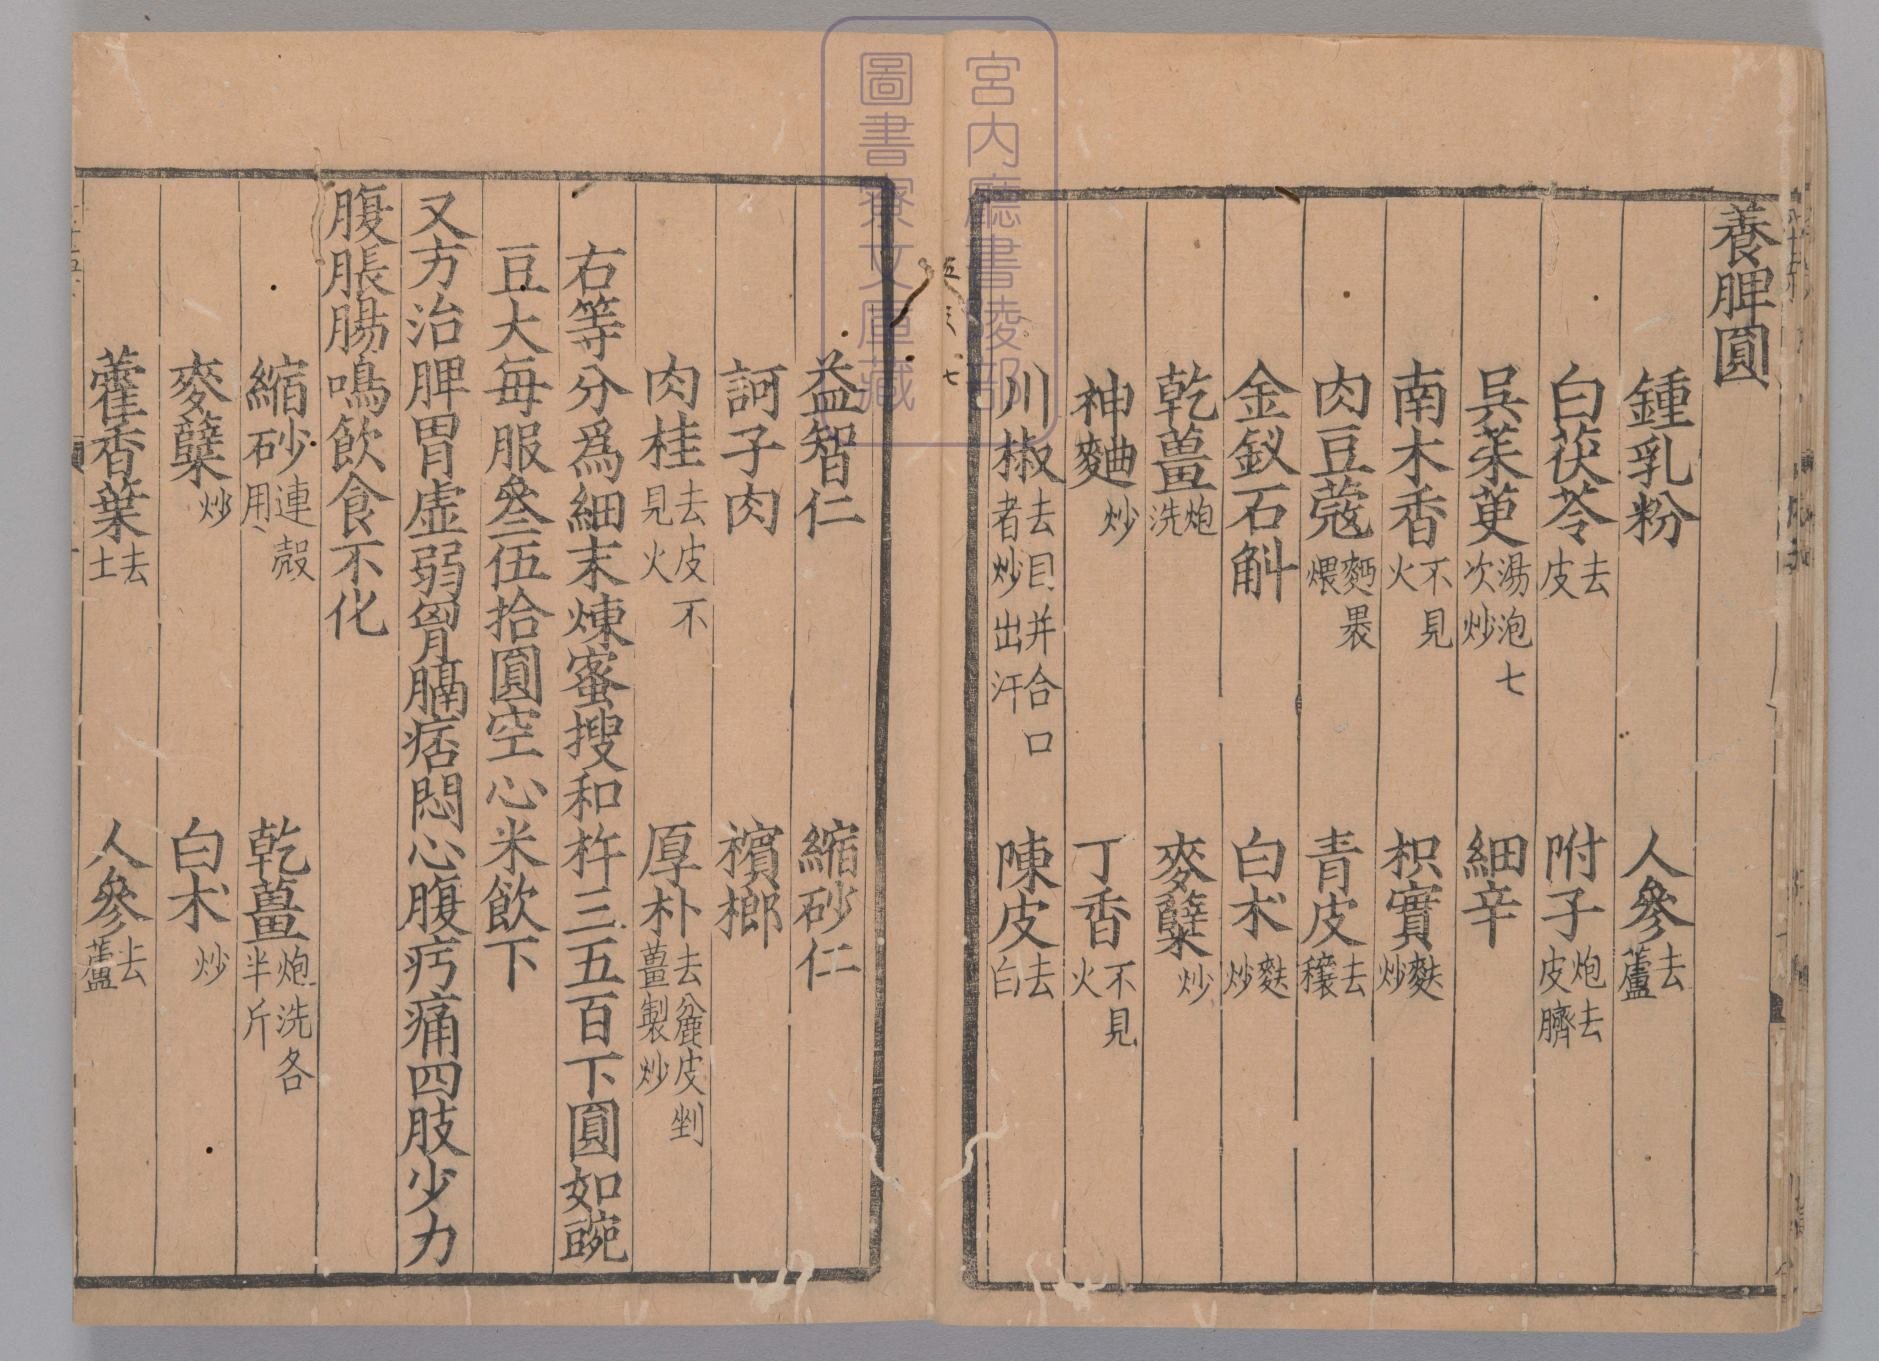 養脾圓
鍾乳粉 人參去蘆
白茯苓去皮 附子炮去皮臍
吳茱萸湯泡七次炒 細辛
南木香不見火 枳實麩炒
肉豆蔻麪裹煨 青皮去穰
金釵石斛 白朮麩炒
乾薑炮洗 麥櫱炒
神麯炒 丁香不見火
川椒去目并合口者炒出汗 陳皮去白
益智仁 縮砂仁
訶子肉 檳榔
肉桂去皮不見火 厚朴去麄皮剉薑製炒
右等分爲細末煉蜜搜和杵三五百下圓如豌
豆大每服叄伍拾圓空心米飲下
又方治脾胃虛弱胷膈痞悶心腹㽲痛四肢少力
腹脹腸鳴飲食不化
縮砂連殼用 乾薑炮洗各半斤
麥櫱炒 白朮炒
藿香葉去土 人參去蘆
宮内廳書陵部
圖書寮文庫藏